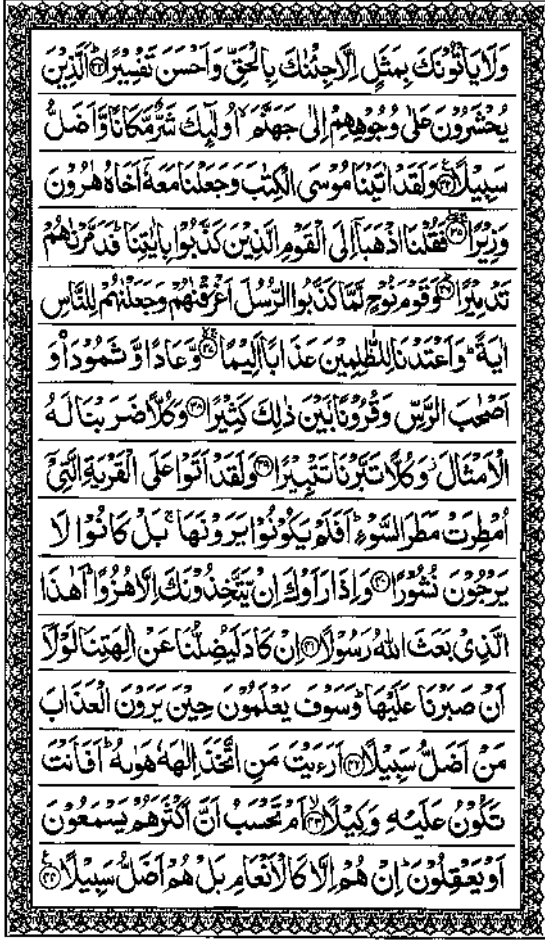 وَلَا يَاْتُوْنَكَ بِمَثَلٍ اِلَّا جِئْنٰكَ بِالْحَقِّ وَاَحْسَنَ تَفْسِيْرًا ﴿۳۳﴾ اَلَّذِيْنَ
يُحْشَرُوْنَ عَلٰى وُجُوْهِهِمْ اِلٰى جَهَنَّمَ ۙ اُولٰٓئِكَ شَرٌّ مَّكَانًا وَّاَضَلُّ
سَبِيْلًا ﴿۳۴﴾ وَلَقَدْ اٰتَيْنَا مُوْسَى الْكِتٰبَ وَجَعَلْنَا مَعَهٗٓ اَخَاهُ هٰرُوْنَ
وَزِيْرًا ﴿۳۵﴾ فَقُلْنَا اذْهَبَآ اِلَى الْقَوْمِ الَّذِيْنَ كَذَّبُوْا بِاٰيٰتِنَا ؕ فَدَمَّرْنٰهُمْ
تَدْمِيْرًا ﴿۳۶﴾ وَقَوْمَ نُوْحٍ لَّمَّا كَذَّبُوا الرُّسُلَ اَغْرَقْنٰهُمْ وَجَعَلْنٰهُمْ لِلنَّاسِ
اٰيَةً ؕ وَاَعْتَدْنَا لِلظّٰلِمِيْنَ عَذَابًا اَلِيْمًا ﴿۳۷﴾ وَّعَادًا وَّثَمُوْدَا۟ وَ
اَصْحٰبَ الرَّسِّ وَقُرُوْنًۢا بَيْنَ ذٰلِكَ كَثِيْرًا ﴿۳۸﴾ وَكُلًّا ضَرَبْنَا لَهُ
الْاَمْثَالَ ۫ وَكُلًّا تَبَّرْنَا تَتْبِيْرًا ﴿۳۹﴾ وَلَقَدْ اَتَوْا عَلَى الْقَرْيَةِ الَّتِيْٓ
اُمْطِرَتْ مَطَرَ السَّوْءِ ؕ اَفَلَمْ يَكُوْنُوْا يَرَوْنَهَا ۚ بَلْ كَانُوْا لَا
يَرْجُوْنَ نُشُوْرًا ﴿۴۰﴾ وَاِذَا رَاَوْكَ اِنْ يَّتَّخِذُوْنَكَ اِلَّا هُزُوًا ؕ اَهٰذَا
الَّذِيْ بَعَثَ اللّٰهُ رَسُوْلًا ﴿۴۱﴾ اِنْ كَادَ لَيُضِلُّنَا عَنْ اٰلِهَتِنَا لَوْلَآ
اَنْ صَبَرْنَا عَلَيْهَا ؕ وَسَوْفَ يَعْلَمُوْنَ حِيْنَ يَرَوْنَ الْعَذَابَ
مَنْ اَضَلُّ سَبِيْلًا ﴿۴۲﴾ اَرَءَيْتَ مَنِ اتَّخَذَ اِلٰهَهٗ هَوٰىهُ ؕ اَفَاَنْتَ
تَكُوْنُ عَلَيْهِ وَكِيْلًا ﴿۴۳﴾ اَمْ تَحْسَبُ اَنَّ اَكْثَرَهُمْ يَسْمَعُوْنَ
اَوْ يَعْقِلُوْنَ ؕ اِنْ هُمْ اِلَّا كَالْاَنْعَامِ بَلْ هُمْ اَضَلُّ سَبِيْلًا ﴿۴۴﴾